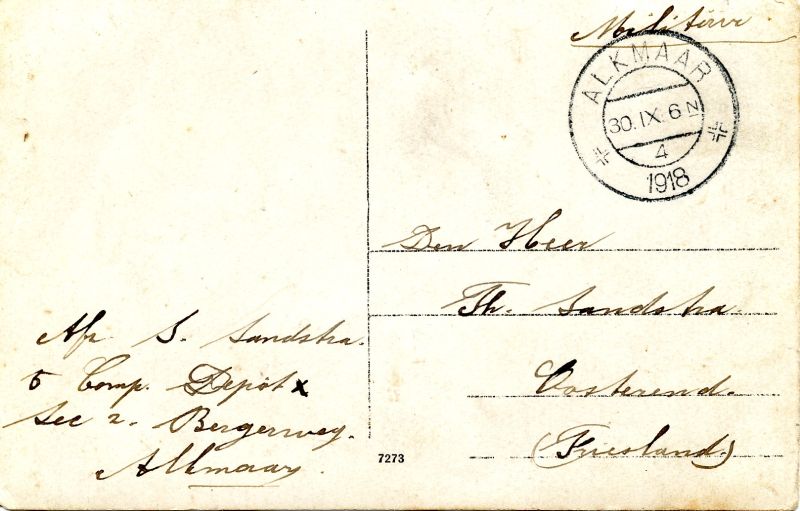 Militair
ALKMAAR
30.IX.6N
4
1918
Den Heer
Th. Sandstra
Oosterend.
(Friesland)
Afz S. Sandstra.
5 Comp. Depot x
Sec 2. Bergerweg.
Alkmaar.
7273